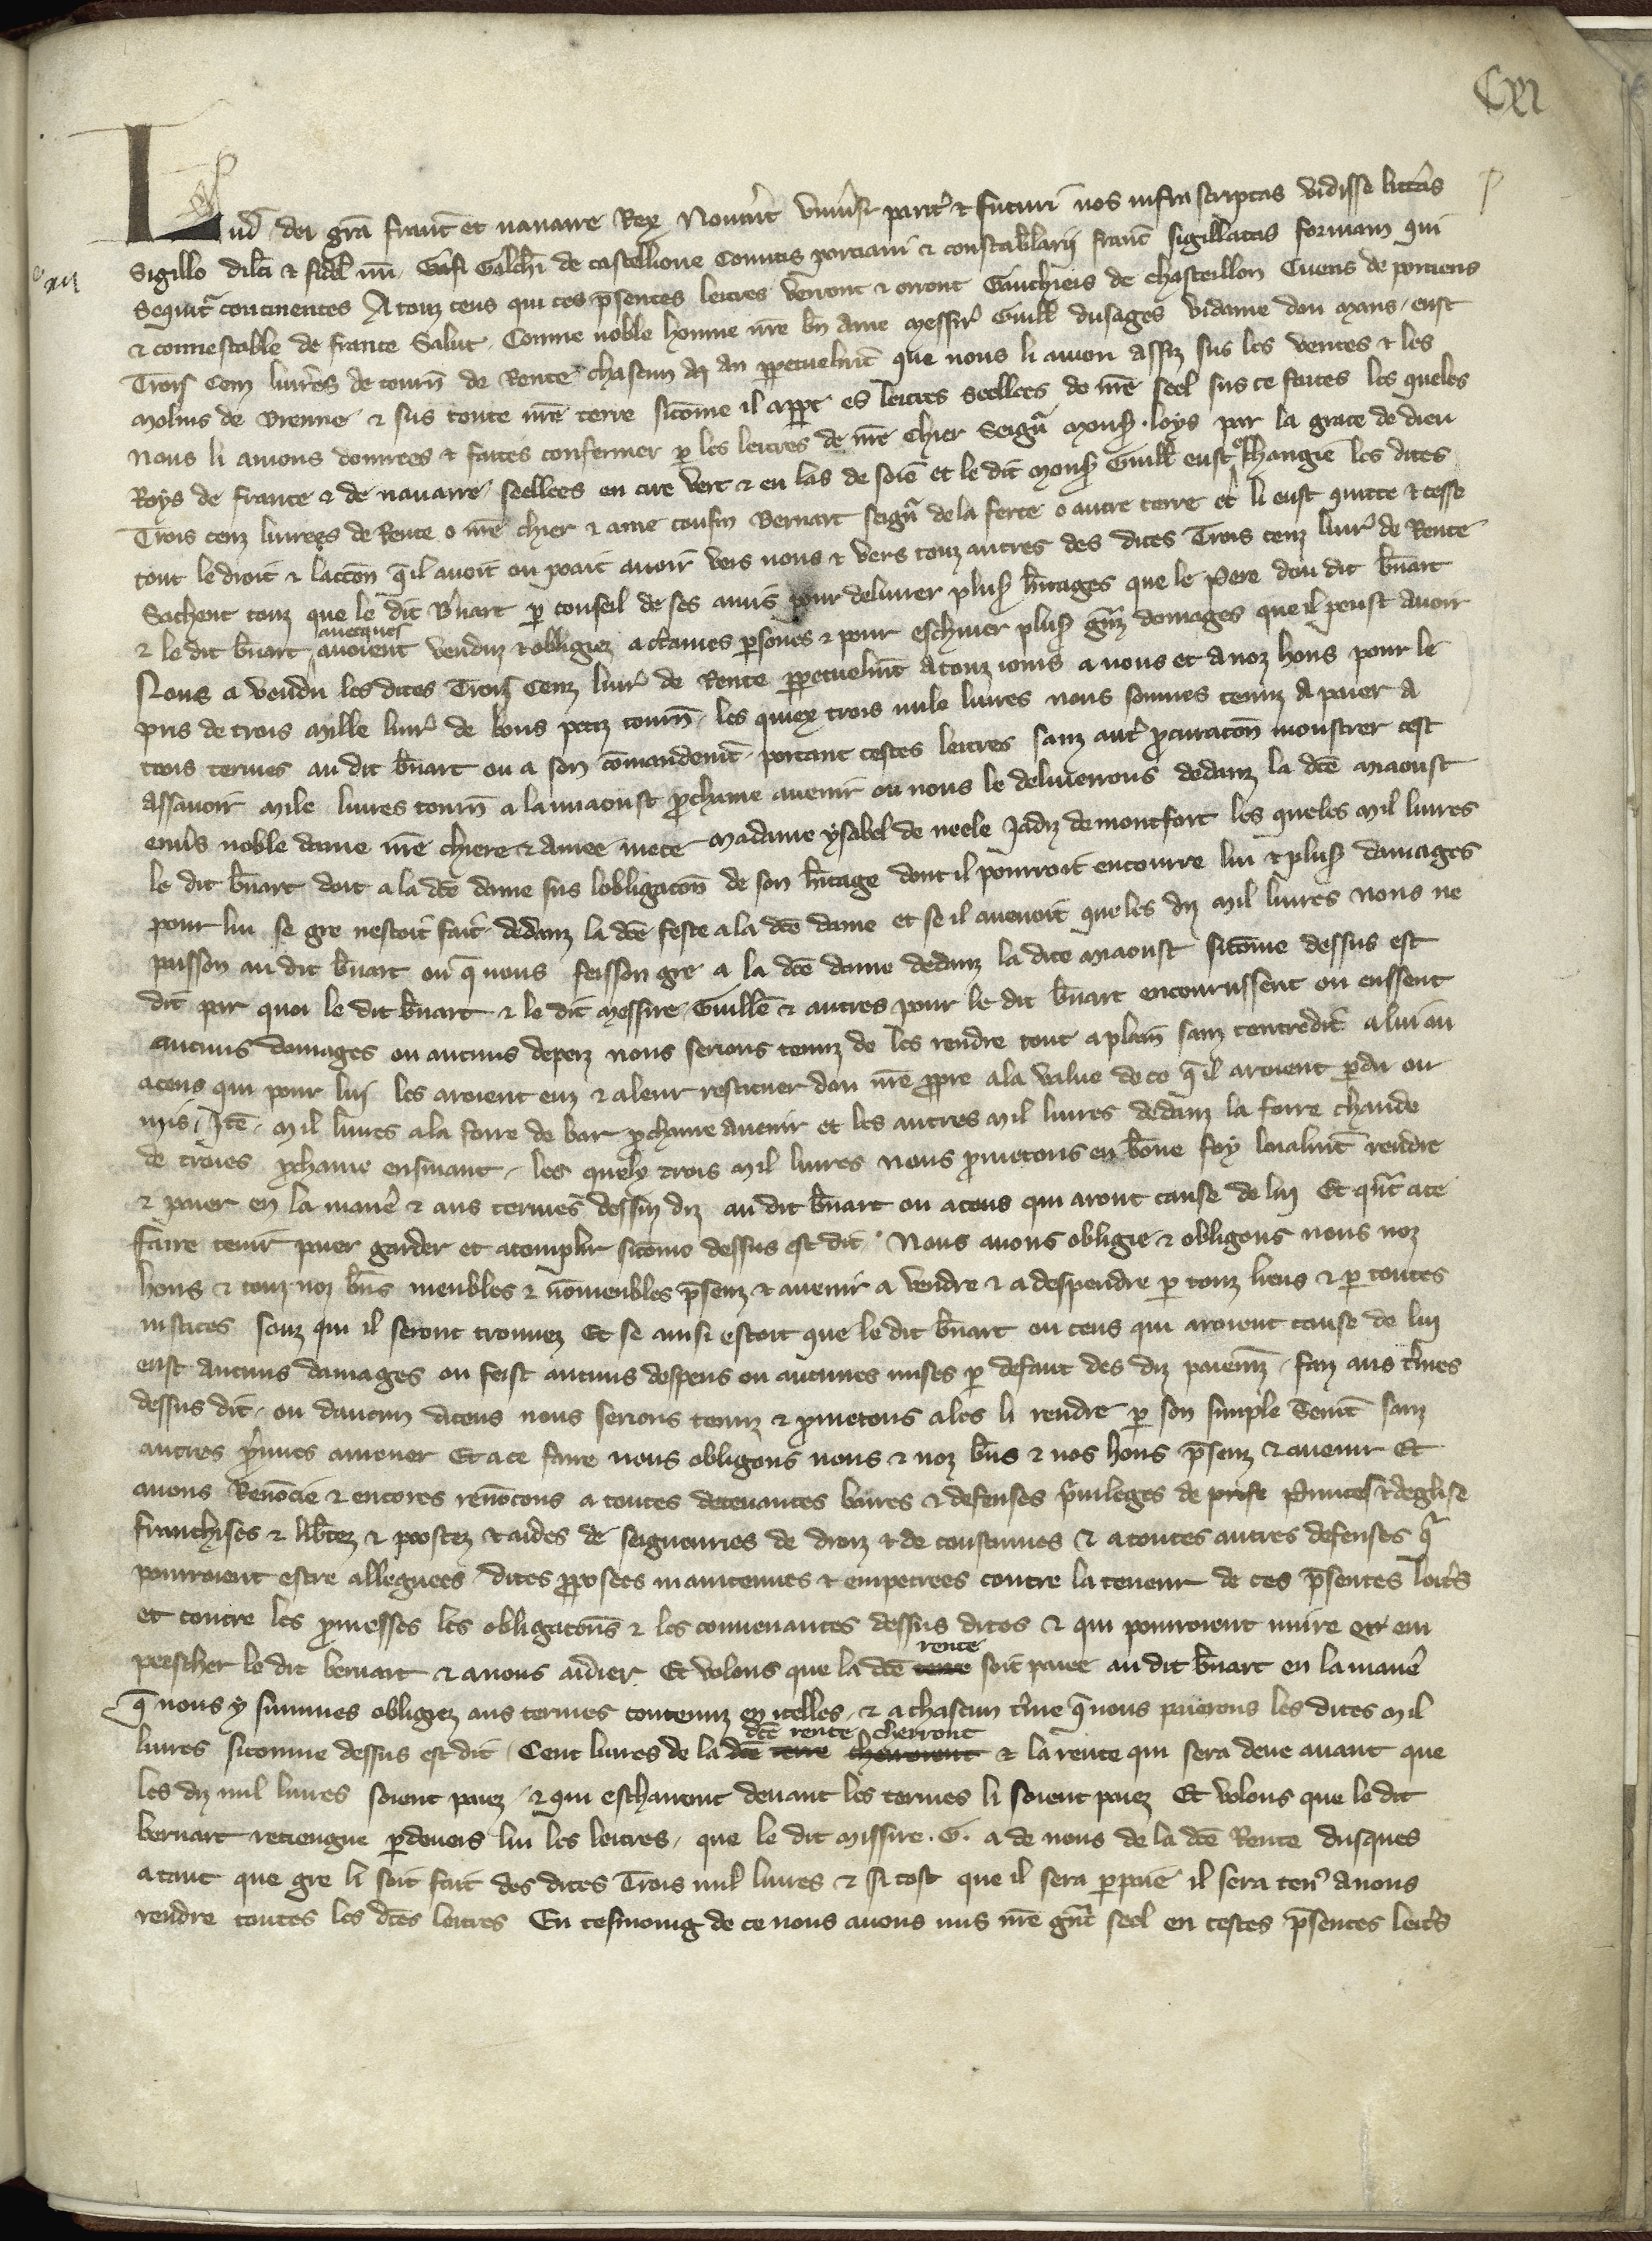 CXI
Lud dei gra franc et nauarre Rex Nouerit vniuersi parit & futuri nos infrascriptas vidisse litteras
Sigillo dilci & fidel nri Galchi de castellione Comitis porciani & constabularij franc sigillatas formam qui
Sequit continentes A touz ceus qui ces psentes lectres verront & orront Gauchiers de chasteillon Cuens de porciens
& connestable de france Salut. Comme noble homme nre bn ame messir Guill dusages vidame dou mans, eust
Trois Cenz liurees de tourn de Rente chascun an ppetuelmt que nous li auion assiz sus les ventes & les
molins de vrenne & sus toute nre terre sicome il appt es lectres seellees de nre seel sus ce faites les queles
nous li auions donnees & faites confermer p les lectres de nre chier Seign mons. loys par la grace de dieu
Roys de france & de nauarre, seellees en cire vert & en las de soie et le dit mons Guill eust eschangie les dites
Trois cenz liurees de Rente o nre chier & ame cousin Bernart seign de la ferte o autre terre et li eust quitte & cesse
tout le droit & laccon qil auoit ou poait auoir vers nous & vers touz autres des dites Trois cenz liur de Rente
Sachent touz que le dit Bnart p conseil de ses amis pour deliurer plus hitages que le Pere dou dit bnart
& le dit bnart auecques auoient venduz & obligiez a ctaines psones & pour eschiuer plus granz domages que il peust auoir
Nous a vendu les dites Trois Cenz liur de Rente ppetuelmt a touz iours a nous et a noz hons pour le
pris de trois mille liur de bons petiz tourn. les quiex trois mile liures nous sommes tenuz a paier a
trois termes au dit bnart ou a son comandemt. portant cestes lectres sanz autre pcuracon monstrer cest
assauoir mile liures tourn a la miaoust pchaine auenir ou nous le deliuerrons dedanz la dce miaoust
enuers noble dame nre chiere & amee niece madame ysabel de neele Jadiz de montfort les queles mil liures
le dit bnart doit a la dce dame sus lobligacon de son hitage dont il pourroit encourre lui & plus damages
pour lui se gre nestoit fait dedanz la dce feste a la dce dame et se il auenoit que les diz mil liures nous ne
paisson au dit bnart ou q nous feisson gre a la dce dame dedanz la dite miaoust sicome dessus est
dit par quoi le dit bnart & le dit messire Guille & autres pour le dit bnart encourussent ou eussent
aucuns domages ou aucuns depenz nous serions tenuz de les rendre tout a plain sanz contredit a lui ou
a ceus qui pour lui les aroient euz & a leur restituer dou nre ppre a la value de ce qil aroient pdu ou
mis, Ite. mil liures a la foire de bar pchaine auenir et les autres mil liures dedanz la foire chaude
de troies pchaine ensiuant, les quelx trois mil liures nous pmetons en bone foy loialmt rendre
& paier en la manie & aus termes dessus diz au dit bnart ou a ceus qui aront cause de lui Et qnt a ce
faire tenir paier garder et acomplir sicome dessus est dit. Nous auons obligie & obligons nous noz
hons & touz noz bns meubles & nomeubles psenz & auenir a vendre & a despendre p touz lieus & p toutes
iustices souz qui il seront trouuez Et se ainsi estoit que le dit bnart ou ceus qui aroient cause de lui
eust aucuns damages ou feist aucuns despens ou aucunes mises p defaut des diz paiemz, faiz aus tmes
dessus dit, ou daucun diceus nous serions tenuz & pmetons a les li rendre p son simple Sermt sanz
autres pueues amener Et a ce faire nous obligons nous & noz bns & nos hons psenz & auenir Et
auons Renoncie & encores renoncons a toutes deceuances barres & defenses priuileges de princes & deglise
franchises & libtez & poostez & aides de seigneuries de droiz & de coustumes & a toutes autres defenses q
pourroient estre alleguees dites pposees maintenues & empetrees contre la teneur de ces psentes lectres
et contre les pmesses les obligacons & les conuenances dessus dites & qui pourroient nuire ou em
peescher le dit bernart & a nous aidier. Et volons que la dce rente soit paiee au dit bnart en la manie
q nous y summes obligiez aus termes contenuz en icelles, & a chascun tme q nous paierons les dites mil
liures sicomme dessus est dit, Cent liures de la dce rente cherront & la rente qui sera deue auant que
les diz mil liures soient paiez, & qui escharront deuant les termes li soient paiez Et volons que le dit
bernart retiengne pdeuers lui les lectres, que le dit missire. G. a de nous de la dce Rente dusques
a tant que gre li soit fait des dites Trois mil liures & si tost que il sera ppaie il sera tenu a nous
rendre toutes les dces lectres En tesmoing de ce nous auons mis nre gnt seel en cestes psentes lectres